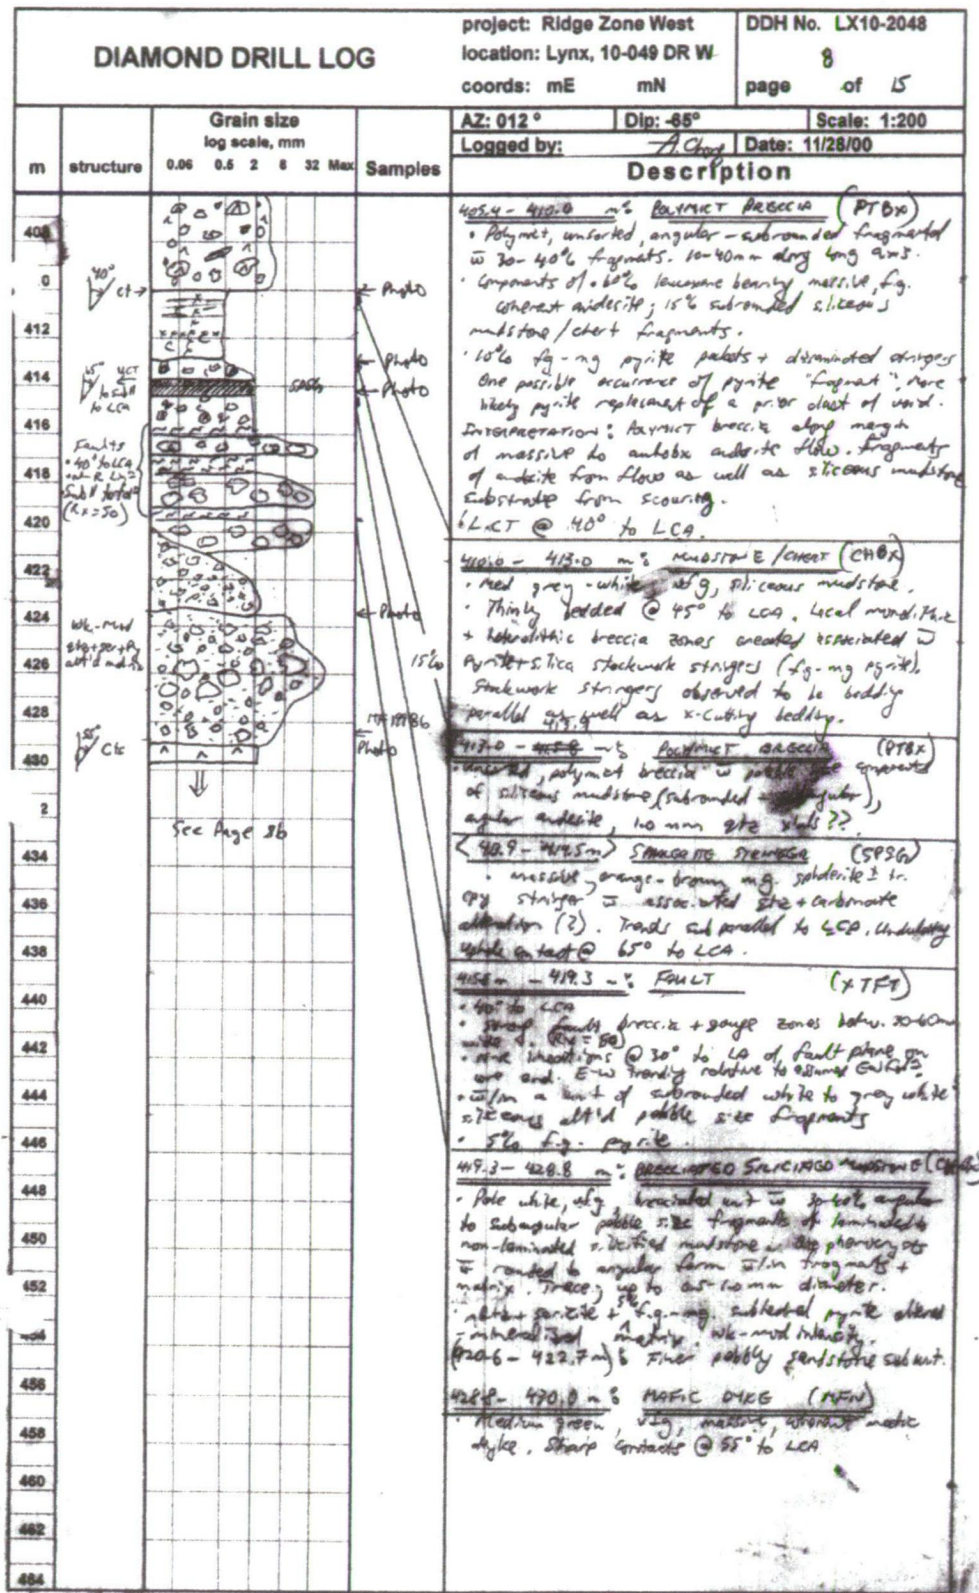 DIAMOND DRILL LOG
project: Ridge Zone West
location: Lynx, 10-049 DR W
coords: mE mN
DDH No. LX10-2048
page 8 of 15
AZ: 012 ° Dip: -65° Scale: 1:200
Logged by: Date: 11/28/00
m structure Grain size Samples Description
log scale, mm
0.06 0.5 2 8 32 Max
408
0
412
414
416
418
420
422
424
426
428
430
2
434
436
438
440
442
444
446
448
450
452
454
456
458
460
462
464
40° ct
to LCA
Faults
40° to LCA
Wk-mod
55° Ctc
See Page 8b
Photo
Photo
SPSG
Photo
Photo
15%
Photo
405.4 - 410.0 m: POLYMICT BRECCIA (PTBX)
• Polymict, unsorted, angular - subrounded fragmental
w 30-40% fragments. 10-40mm along long axis.
• Components of 60% leucoxene bearing massive, f.g.
coherent andesite; 15% subrounded siliceous
mudstone/chert fragments.
• 10% fg-mg pyrite + disseminated stringers
One possible occurrence of pyrite "fragment", more
likely pyrite replacement of a prior clast of void.
INTERPRETATION: POLYMICT breccia along margin
of massive to autobx andesite flow. Fragments
of andesite from flow as well as siliceous mudstone
substrate from scouring.
L.CT @ 40° to LCA.
410.0 - 413.0 m: MUDSTONE/CHERT (CHBX)
• Med grey-white vfg, siliceous mudstone.
• Thinly bedded @ 45° to LCA. Local monolithic
+ heterolithic breccia zones associated w
pyrite+silica stockwork stringers (fg-mg pyrite).
Stockwork stringers observed to be bedding
parallel as well as x-cutting bedding.
413.0 - 413.9 m: POLYMICT BRECCIA (PTBX)
• unsorted, polymict breccia w pebble components
of siliceous mudstone (subrounded - angular),
angular andesite, 1.0 mm qtz xtals??
(413.9 - 414.5m) SPHALERITE STRINGER (SPSG)
• massive, orange-brown m.g. sphalerite ± tr.
cpy stringer w associated qtz + carbonate
alteration (?). Trends sub parallel to LCA. Undulatory
uphole contact @ 65° to LCA.
415.8 m - 419.3 m: FAULT (XTFT)
• 40° to LCA
• strong fault breccia + gouge zones betw. 30-60mm
@ 30° to LA of fault plane on
E-W trending relative to assumed
• w/in a unit of subrounded white to grey white
siliceous alt'd pebble size fragments
• 5% f.g. pyrite.
419.3 - 428.8 m: BRECCIATED SILICIFIED MUDSTONE
• Pale white, vfg, brecciated unit w 30-40% angular
to subangular pebble size fragments of laminated to
non-laminated silicified mudstone. phenocrysts
w rounded to angular form w/in fragments +
matrix. Trace, up to 0.5-1.0mm diameter.
sericite + 5% f.g.-mg subhedral pyrite altered
-mineralized matrix. wk-mod intensity.
(420.6 - 422.7 m): Finer pebbly sandstone subunit.
428.8 - 430.0 m: MAFIC DYKE (MFIN)
• Medium green, vfg, massive, coherent mafic
dyke. Sharp contacts @ 55° to LCA